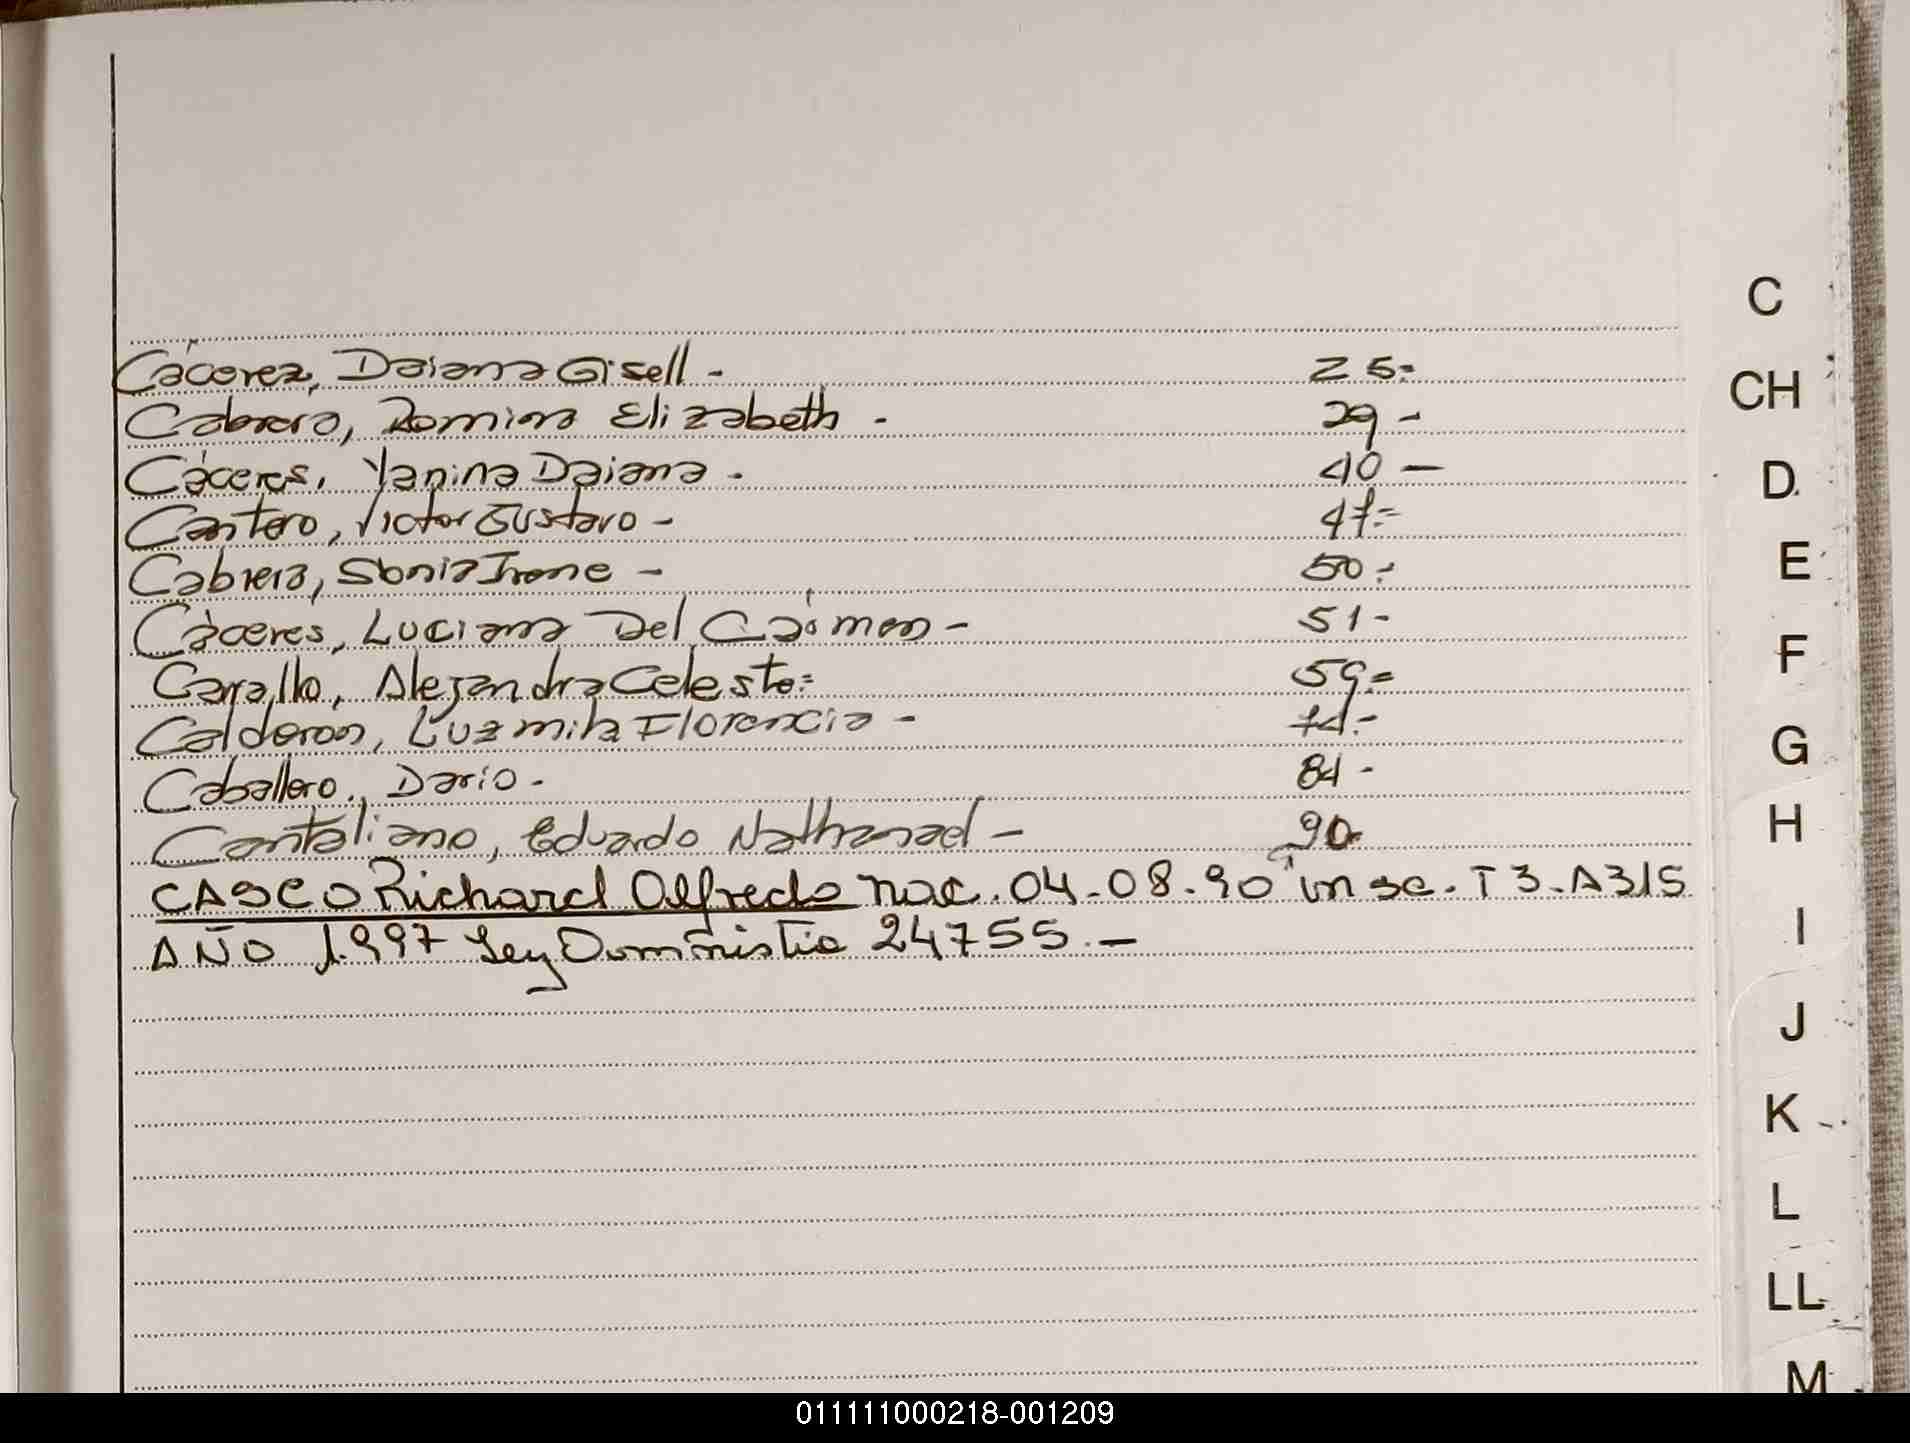 Cácerez, Daiana Gisell - 25.-
Cabrera, Romina Elizabeth - 29 -
Cáceres, Yanina Daiana - 40 -
Cantero, Victor Gustavo - 47.-
Cabrera, Sonia Irene - 50.-
Cáceres, Luciana Del Carmen - 51 -
Carallo, Alejandra Celeste.- 59.-
Calderon, Luzmila Florencia - 74.-
Caballero, Dario - 84 -
Cantaliano, Eduardo Nathanael - 90
CASCO Richard Alfredo nac. 04-08-90 insc. T3-A315
AÑO 1.997 Ley 24755.-
C
CH
D
E
F
G
H
I
J
K
L
LL
M
011111000218-001209